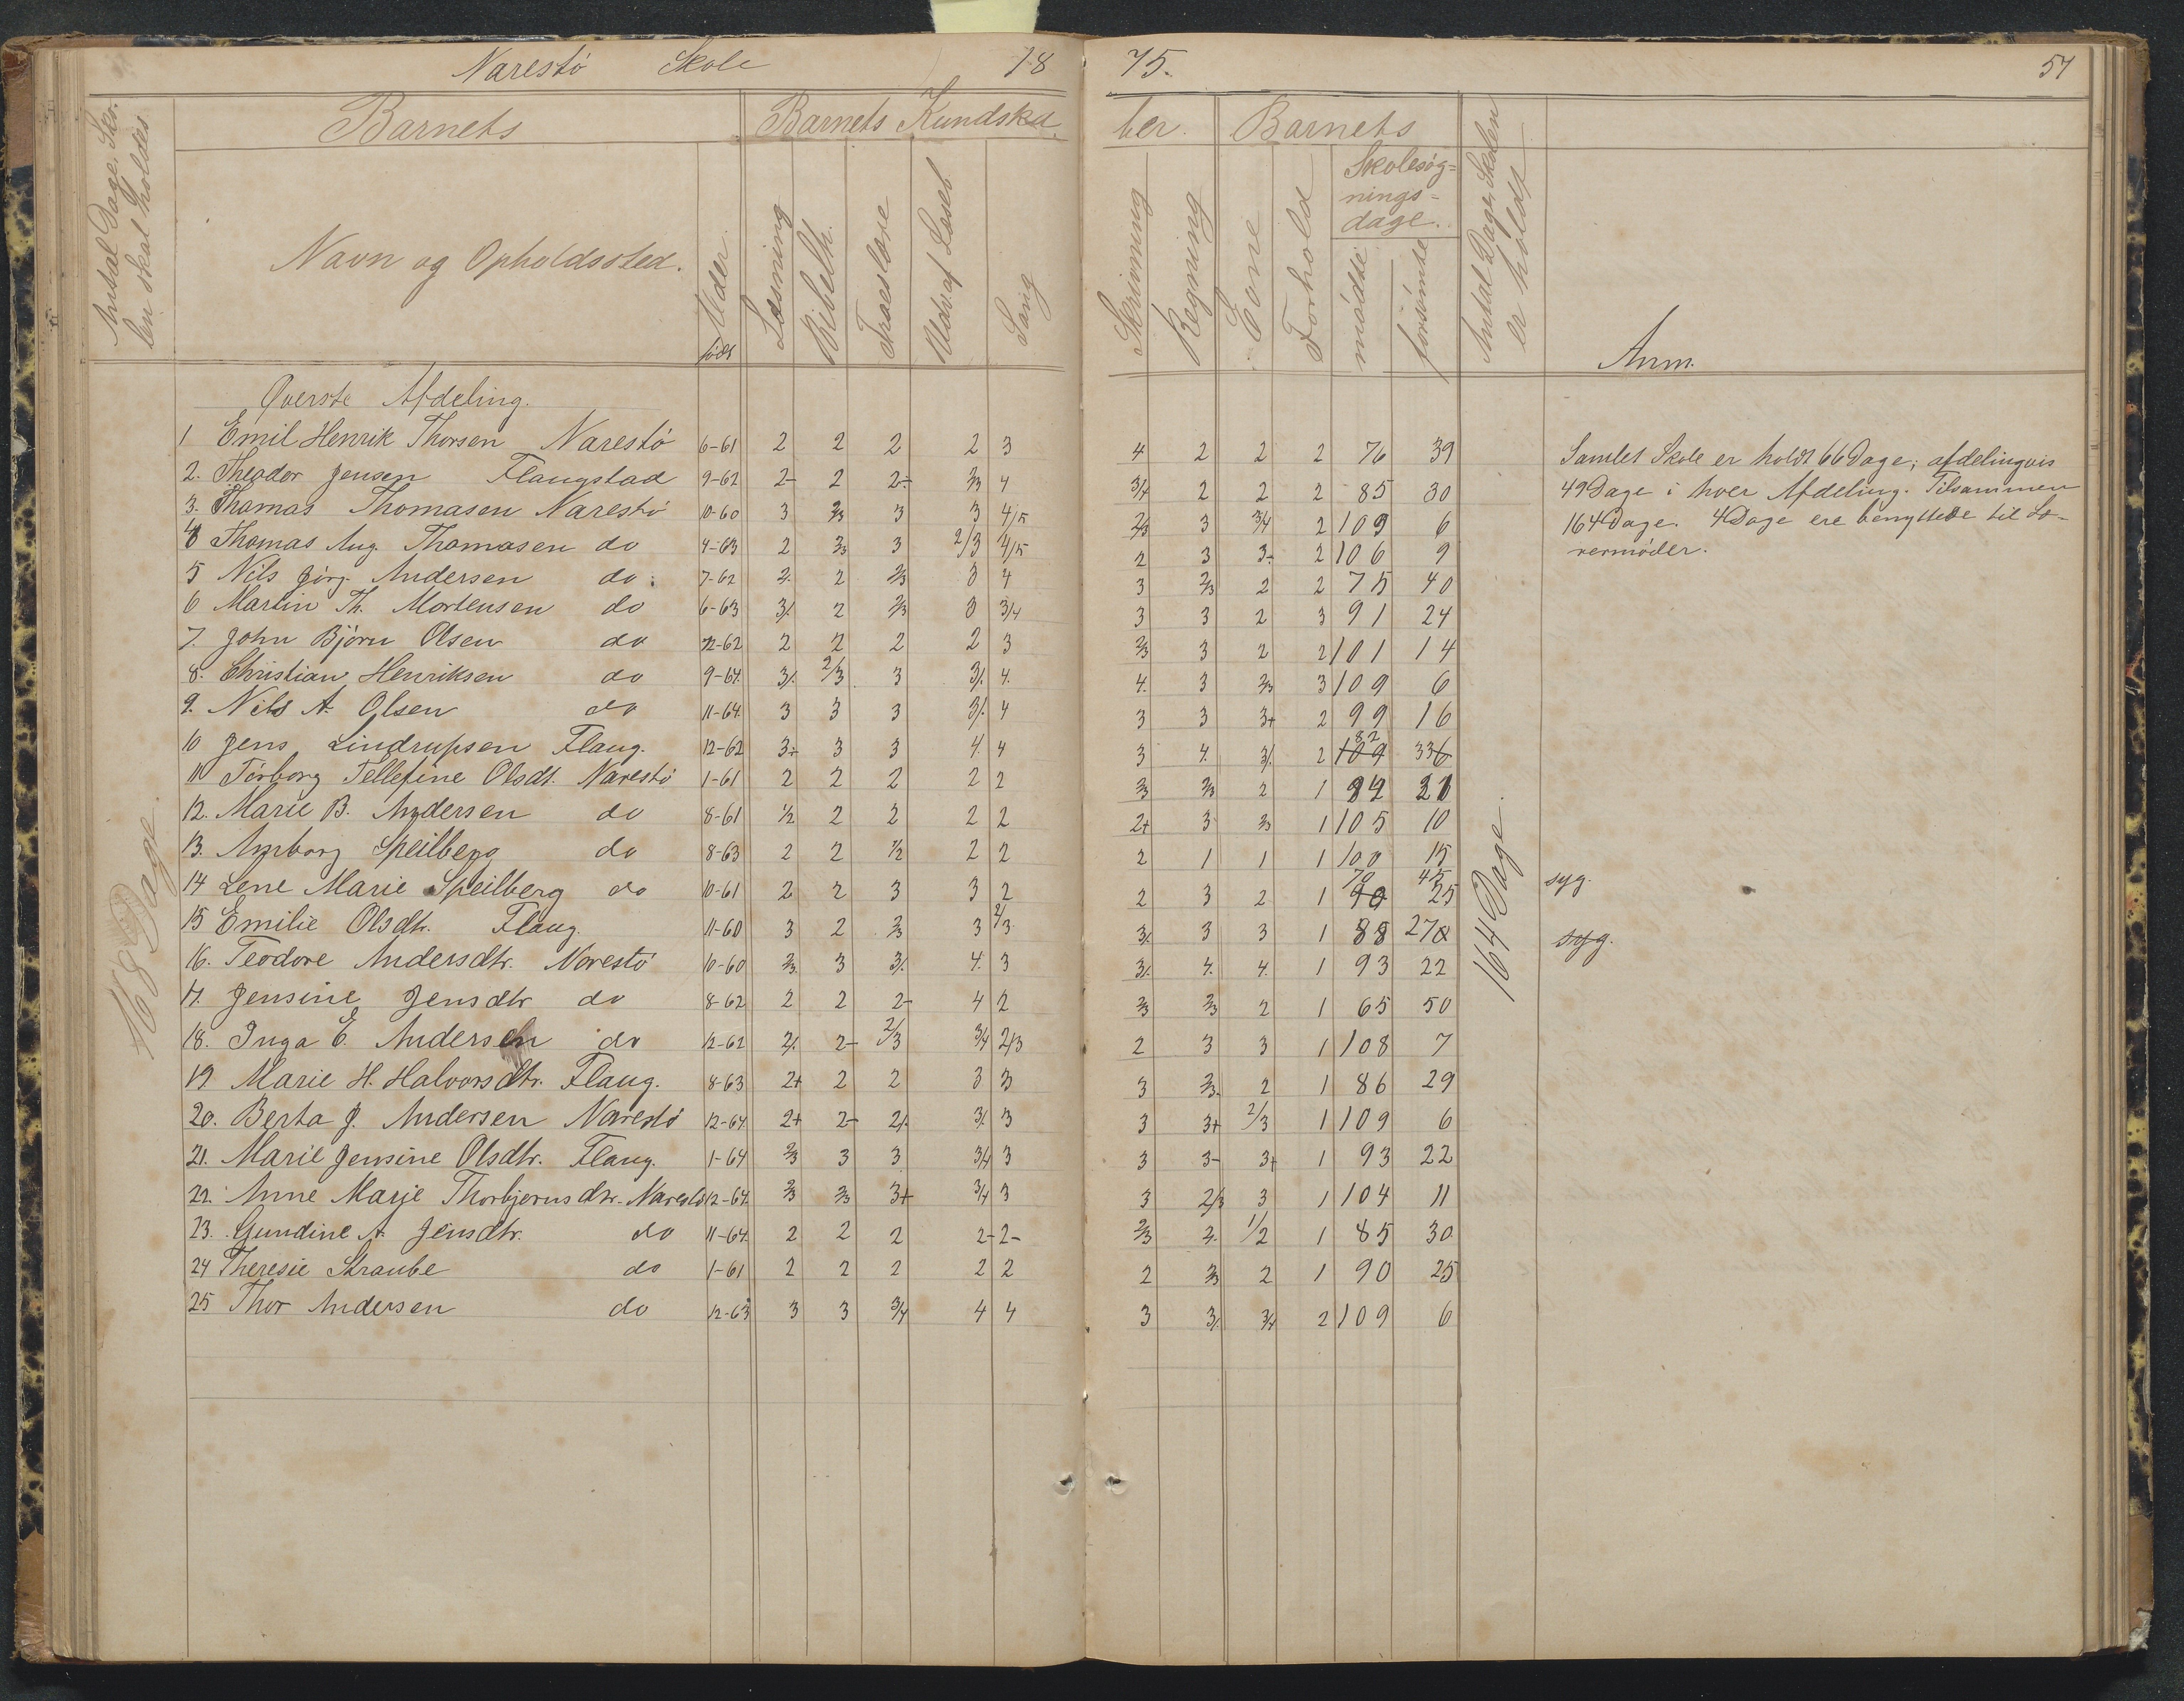 Narestö Skole 18
75. 51
Antal Dage, Sko-
len skal holdes.
Barnets
Barnets Kundska
ber. Barnets
Navn og Opholdssted.
Alder
født
Læsning
Bibelh.
Troeslære
Udv. af Læseb.
Sang
Skrivning
Regning
Evne
Forhold
Skolesøg-
nings-
dage.
mødte
forsömte
Antal Dage, Skolen
er holdt
Anm.
Øverste Afdeling.
1 Emil Henrik Thorsen Narestö 6-61 2 2 2 2 3 4 2 2 2 76 39
2. Theodor Jensen Flangstad 9-62 2- 2 2÷ 2/3 4 3/4 2 2 2 85 30
3. Thomas Thomasen Narestö 10-60 3 2/3 3 3 4/5 2/3 3 3/4 2 109 6
4 Thomas Aug. Thomasen do 4-63 2 2/3 3 2/3 4/5 2 3 3- 2 106 9
5 Nils Jörg. Andersen do 7-62 2. 2 2/3 3 4 3 2/3 2 2 75 40
6 Martin Th. Mortensen do 6-63 3/. 2 2/3 3 3/4 3 3 2 3 91 24
7. John Björn Olsen do 12-62 2 2 2 2 3 2/3 3 2 2 101 14
8. Christian Henriksen do 9-64. 3/. 2/3 3 3/. 4. 4. 3 2/3 3 109 6
9. Nils A. Olsen do 11-64. 3 3 3 3/. 4 3 3 3+ 2 99 16
10 Jens Lindrupsen Flang. 12-62 3÷ 3 3 4. 4 3 4. 3/. 2 109 82 336
11 Torborg Tellefine Olsdt. Narestö 1-61 2 2 2 2 2 2/3 2/3 2 1 94 21
12. Marie B. Andersen do 8-61 1/2 2 2 2 2 2+ 3 2/3 1 105 10
13. Amborg Speilberg do 8-63 2 2 1/2 2 2 2 1 1 1 100 15
14 Lene Marie Speilberg do 10-61 2 2 3 3 2 2 3 2 1 90 70 25 45 syg.
15 Emilie Olsdtr. Flaug. 11-60 3 2 2/3 3 2/3 3/. 3 3 1 88 27 syg.
16. Teodore Andersdtr. Narestö 10-60 2/3. 3 3/. 4. 3 3/. 4. 4. 1 93 22
17. Jensine Jensdtr do 8-62 2 2 2- 4 2 2/3 2/3 2 1 65 50
18. Inga E. Andersen do 12-62 2/. 2- 2/3 3/4 2/3 2 3 3 1 108 7
19 Marie H. Halvorsdtr. Flaug. 8-63 2+ 2 2 3 3 3 2/3. 2 1 86 29
20. Berta J. Andersen Narestö 12-64. 2+ 2- 2/. 3/. 3 3 3+ 2/3 1 109 6
21. Marie Jensine Olsdtr. Flaug. 1-64 2/3 3 3 3/4 3 3 3- 3+ 1 93 22
22. Anne Marie Thorbjernsdtr. Narestö 12-64. 2/3 2/3 3+ 3/4 3 3 2/3 3 1 104 11
23. Gundine A. Jensdtr. do 11-64. 2 2 2 2- 2- 2/3 2. 1/2 1 85 30
24 Theresie Straube do 1-61 2 2 2 2 2 2 2/3 2 1 90 25
25 Thor Andersen do 12-63 3 3 3/4 4 4 3 3/. 3/4 2 109 6
168 Dage.
164 Dage.
Samlet Skole er holdt 66 Dage; afdelingvis
49 Dage i hver Afdeling. Tilsammen
164 Dage. 4 Dage ere benyttede til Læ-
rermøder.